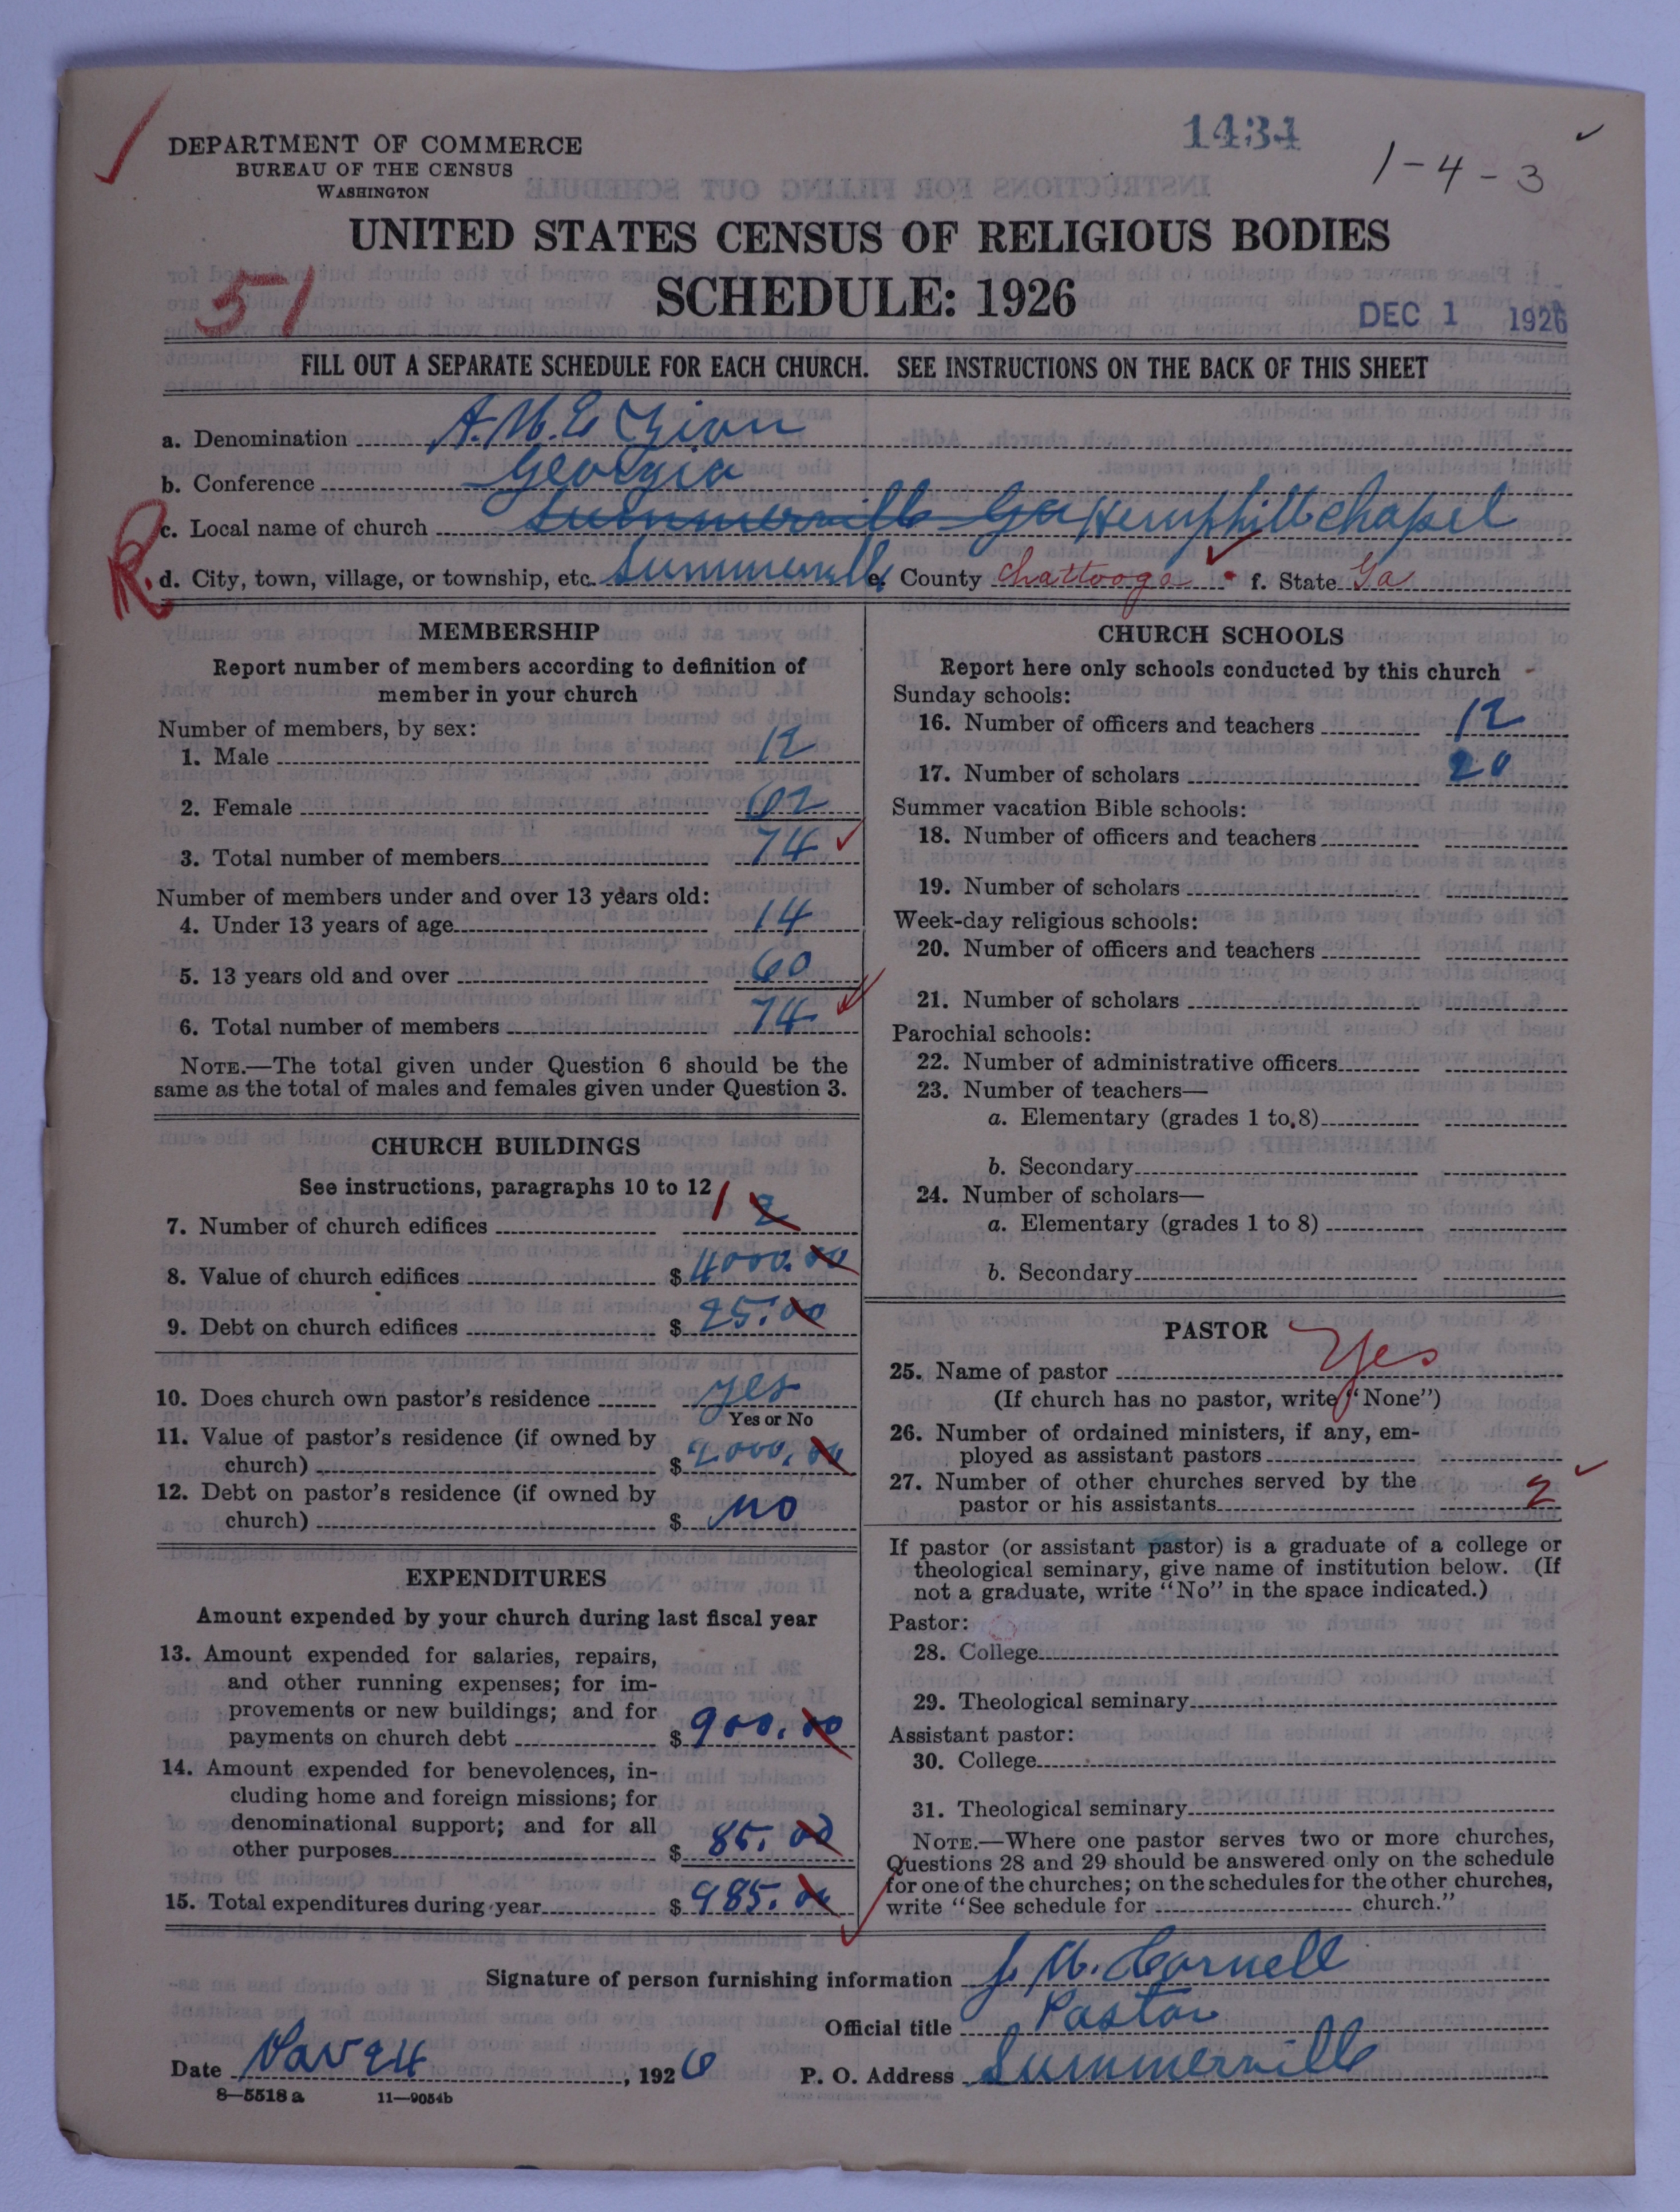 1434
1-4-3
DEPARTMENT OF COMMERCE
BUREAU OF THE CENSUS
WASHINGTON
UNITED STATES CENSUS OF RELIGIOUS BODIES
51
SCHEDULE: 1926
DEC 1 1926
FILL OUT A SEPARATE SCHEDULE FOR EACH CHURCH. SEE INSTRUCTIONS ON THE BACK OF THIS SHEET
a. Denomination A.M.E Zion
b. Conference Georgia
c. Local name of church Summerville Ga Hemphill chapel
R. d. City, town, village, or township, etc. Summerville e. County Chattooga f. State Ga
MEMBERSHIP
Report number of members according to definition of
member in your church
Number of members, by sex:
1. Male 12
2. Female 62
3. Total number of members 74
Number of members under and over 13 years old:
4. Under 13 years of age 14
5. 13 years old and over 60
6. Total number of members 74
NOTE.—The total given under Question 6 should be the
same as the total of males and females given under Question 3.
CHURCH BUILDINGS
See instructions, paragraphs 10 to 12
7. Number of church edifices 1 2
8. Value of church edifices $ 4000.00
9. Debt on church edifices $ 25.00
10. Does church own pastor's residence yes
Yes or No
11. Value of pastor's residence (if owned by
church) $ 2000.00
12. Debt on pastor's residence (if owned by
church) $ no
EXPENDITURES
Amount expended by your church during last fiscal year
13. Amount expended for salaries, repairs,
and other running expenses; for im-
provements or new buildings; and for
payments on church debt $ 900.00
14. Amount expended for benevolences, in-
cluding home and foreign missions; for
denominational support; and for all
other purposes $ 85.00
15. Total expenditures during year $ 985.00
CHURCH SCHOOLS
Report here only schools conducted by this church
Sunday schools:
16. Number of officers and teachers 12
17. Number of scholars 20
Summer vacation Bible schools:
18. Number of officers and teachers
19. Number of scholars
Week-day religious schools:
20. Number of officers and teachers
21. Number of scholars
Parochial schools:
22. Number of administrative officers
23. Number of teachers—
a. Elementary (grades 1 to 8)
b. Secondary
24. Number of scholars—
a. Elementary (grades 1 to 8)
b. Secondary
PASTOR
25. Name of pastor Yes
(If church has no pastor, write "None")
26. Number of ordained ministers, if any, em-
ployed as assistant pastors
27. Number of other churches served by the
pastor or his assistants 2
If pastor (or assistant pastor) is a graduate of a college or
theological seminary, give name of institution below. (If
not a graduate, write "No" in the space indicated.)
Pastor:
28. College
29. Theological seminary
Assistant pastor:
30. College
31. Theological seminary
NOTE.—Where one pastor serves two or more churches,
Questions 28 and 29 should be answered only on the schedule
for one of the churches; on the schedules for the other churches,
write "See schedule for church."
Signature of person furnishing information J. W. Cornell
Official title Pastor
Date Nov 24, 1926 P. O. Address Summerville
8—5518 a 11—9054b